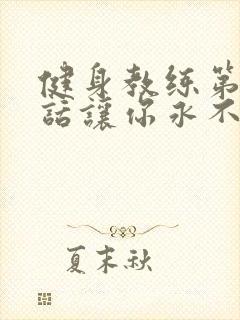 健身教练第
話讓你永不
夏末秋